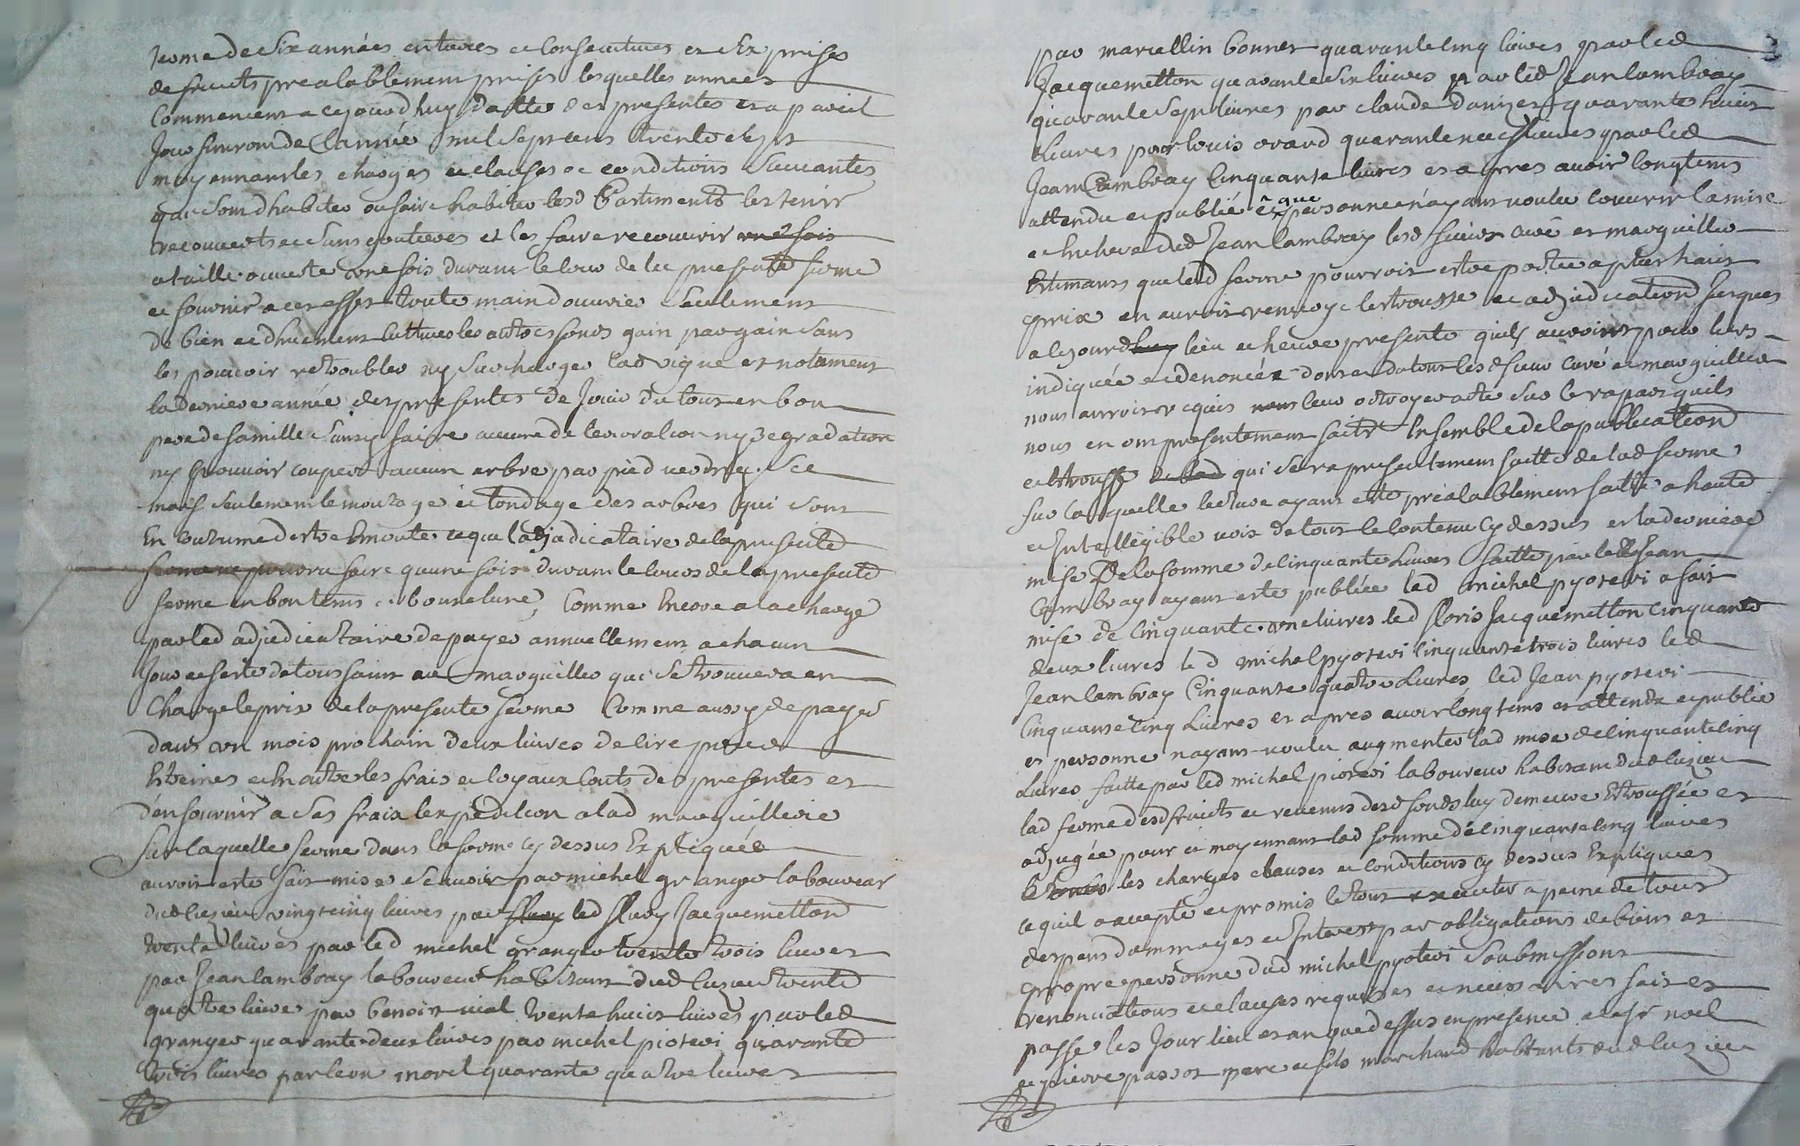 ferme de six années entieres et consecutives et six prises
de fruits prealablement prises lesquelles années
commencent a cejourdhuy datte des presentes et a pareil
jour finiront de lannée mil sept cens trente et sept
moyennant les charges et clauses et conditions suivantes
que sont dhabiter ou faire habiter lesd bastiments les tenir
recouverts et sans goutieres et les faire recouvrir une fois
a taille ouverte une fois durant le cour de la presente ferme
et fournir a cet effet toute main douvrie seulement
de bien et dhuement cultiver les autres fonds gain par gain sans
les pouvoir retroubler ny surcharger lad vigne et notament
la derniere année des presentes de jouir du tout en bon
pere de famille sans y faire aucune deterioration ny degradation
ny pouvoir couper aucun arbre par pied verd ny sec
mais seulement le mouzage et tondage des arbres qui sont
en coutume destre emonte ce que ladjudicataire de la presente
ferme ne pourra faire quune fois durant le cours de la presente
ferme en bon tems et bonne lune, comme encore a la charge
par led adjudicataire de payer annuellement a chacun
jour et feste de toussaint au marguillier qui se trouvera en
charge le prix de la presente ferme comme aussy de payer
dans un mois prochain deux livres de cire pour
etreines et en outre les frais et loyaux couts des presentes et
den fournir a ses frais lexpedition a lad marguillerie
sur laquelle ferme dans la forme cy dessus expliquée
auroit esté fait mise scavoir par michel granger laboureur
dud luzieu vingt cinq livres par led fleury jacquemetton
trente livres par led michel granger trente trois livres
par jean cambray laboureur habitant dud luzieu trente
quatre livres par benoist vial trente huict livres par led
granger quarante deux livres par michel pioteri quarante
trois livres par leon morel quarante quatre livres
par marcellin bonnet quarante cinq livres par led
jacquemetton quarante six livres par led jean cambray
quarante sept livres par claude danizet quarante huict
livres par louis orard quarante neuf livres par led
jean cambray cinquante livres et apres avoir longtems
attendu et publié et que personne nayant voulu couvrir la mise
et enchere dud jean cambray lesd sieurs curé et marguillier
estimants que lad ferme pourroit estre portée a plus haut
prix en auroit renvoyé lestrousse et adjudication jusques
a cejourdhuy lieu et heure presente quils auroient pour lors
indiquée et denoncée dont et du tout lesd sieur curé et marguillier
nous auroit requis leur octroyer acte sur le rapart quils
nous en ont presentement fait ensemble de la publication
et estrousse qui sera presentement faitte de lad ferme
sur laquelle lecture ayant esté préalablement faitte a haute
et intelligible voix de tout le contenu cy dessus et la derniere
mise de la somme de cinquante livres faitte par led jean
cambray ayant esté publiée led michel pyoteri a fait
mise de cinquante une livres led floris jacquemetton cinquante
deux livres led michel pyoteri cinquante trois livres led
jean cambray cinquante quatre livres led jean pyoteri
cinquante cinq livres et apres avoir long tems et attendu et publié
et personne nayant voulu augmenter lad mise de cinquante cinq
livres faitte par led michel pioteri laboureur habitant dud luzieu
lad ferme desd fruicts et revenus desd fonds luy demeure estroussée et
adjugée pour et moyennant lad somme de cinquante cinq livres
les charges clauses et conditions cy dessus expliquées
ce quil a accepté et promis le tout executer a peine de tous
despens dommages et interest par obligations de biens et
propre personne dud michel pyoteri soubmissions
renonciations et clauses requises et necessaires fait et
passé les jour lieu et an que dessus en presence de sr noel
et pierre passot pere et fils marchand habitants dud luzieu